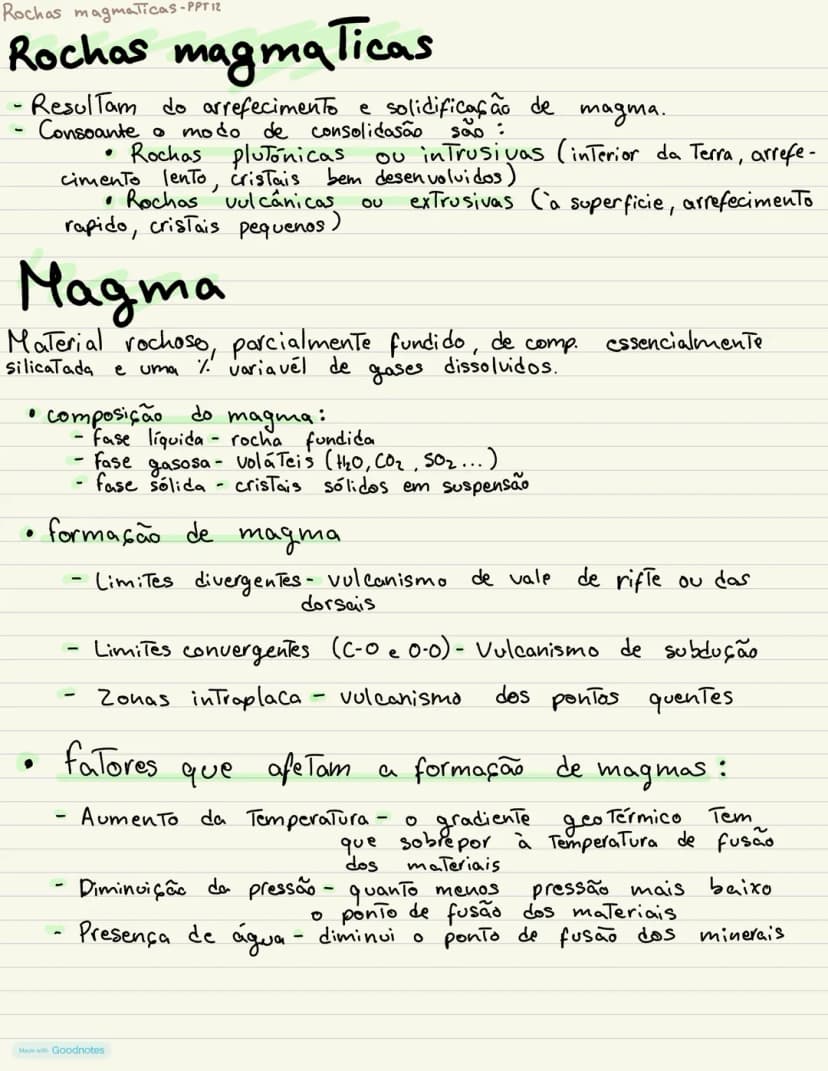 Rochas magmaticas-PPT12
Rochas magmaticas
- Resultam do arrefecimento e solidificação de magma.
- Consoante o modo de consolidasão são:
• Rochas plutónicas ou intrusivas (interior da Terra, arrefe-
cimento lento, cristais bem desenvolvidos)
• Rochas vulcânicas ou extrusivas (à superficie, arrefecimento
rapido, cristais pequenos)
Magma
Material rochoso, parcialmente fundido, de comp. essencialmente
silicatada e uma % variavél de gases dissolvidos.
• composição do magma:
- fase líquida - rocha fundida
- fase gasosa - voláteis (H₂O, CO₂, SO₂...)
- fase sólida - cristais sólidos em suspensão
• formação de magma
- Limites divergentes - vulcanismo de vale de rifte ou das
dorsais
- Limites convergentes (C-O e O-O) - Vulcanismo de subdução
- Zonas intraplaca - vulcanismo dos pontos quentes
• fatores que afetam a formação de magmas:
- Aumento da Temperatura - o gradiente geotérmico tem
que sobrepor à temperatura de fusão
dos materiais
- Diminuição da pressão - quanto menos pressão mais baixo
o ponto de fusão dos materiais
- Presença de água - diminui o ponto de fusão dos minerais
Made with Goodnotes